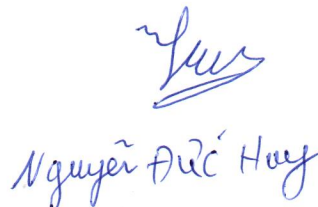 Nguyễn Đức Huy